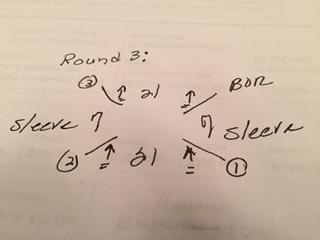 Round 3:
③ ↑ 21 ↑ BOR
sleeve 7 7 sleeve
② ↑ 21 ↑ ①